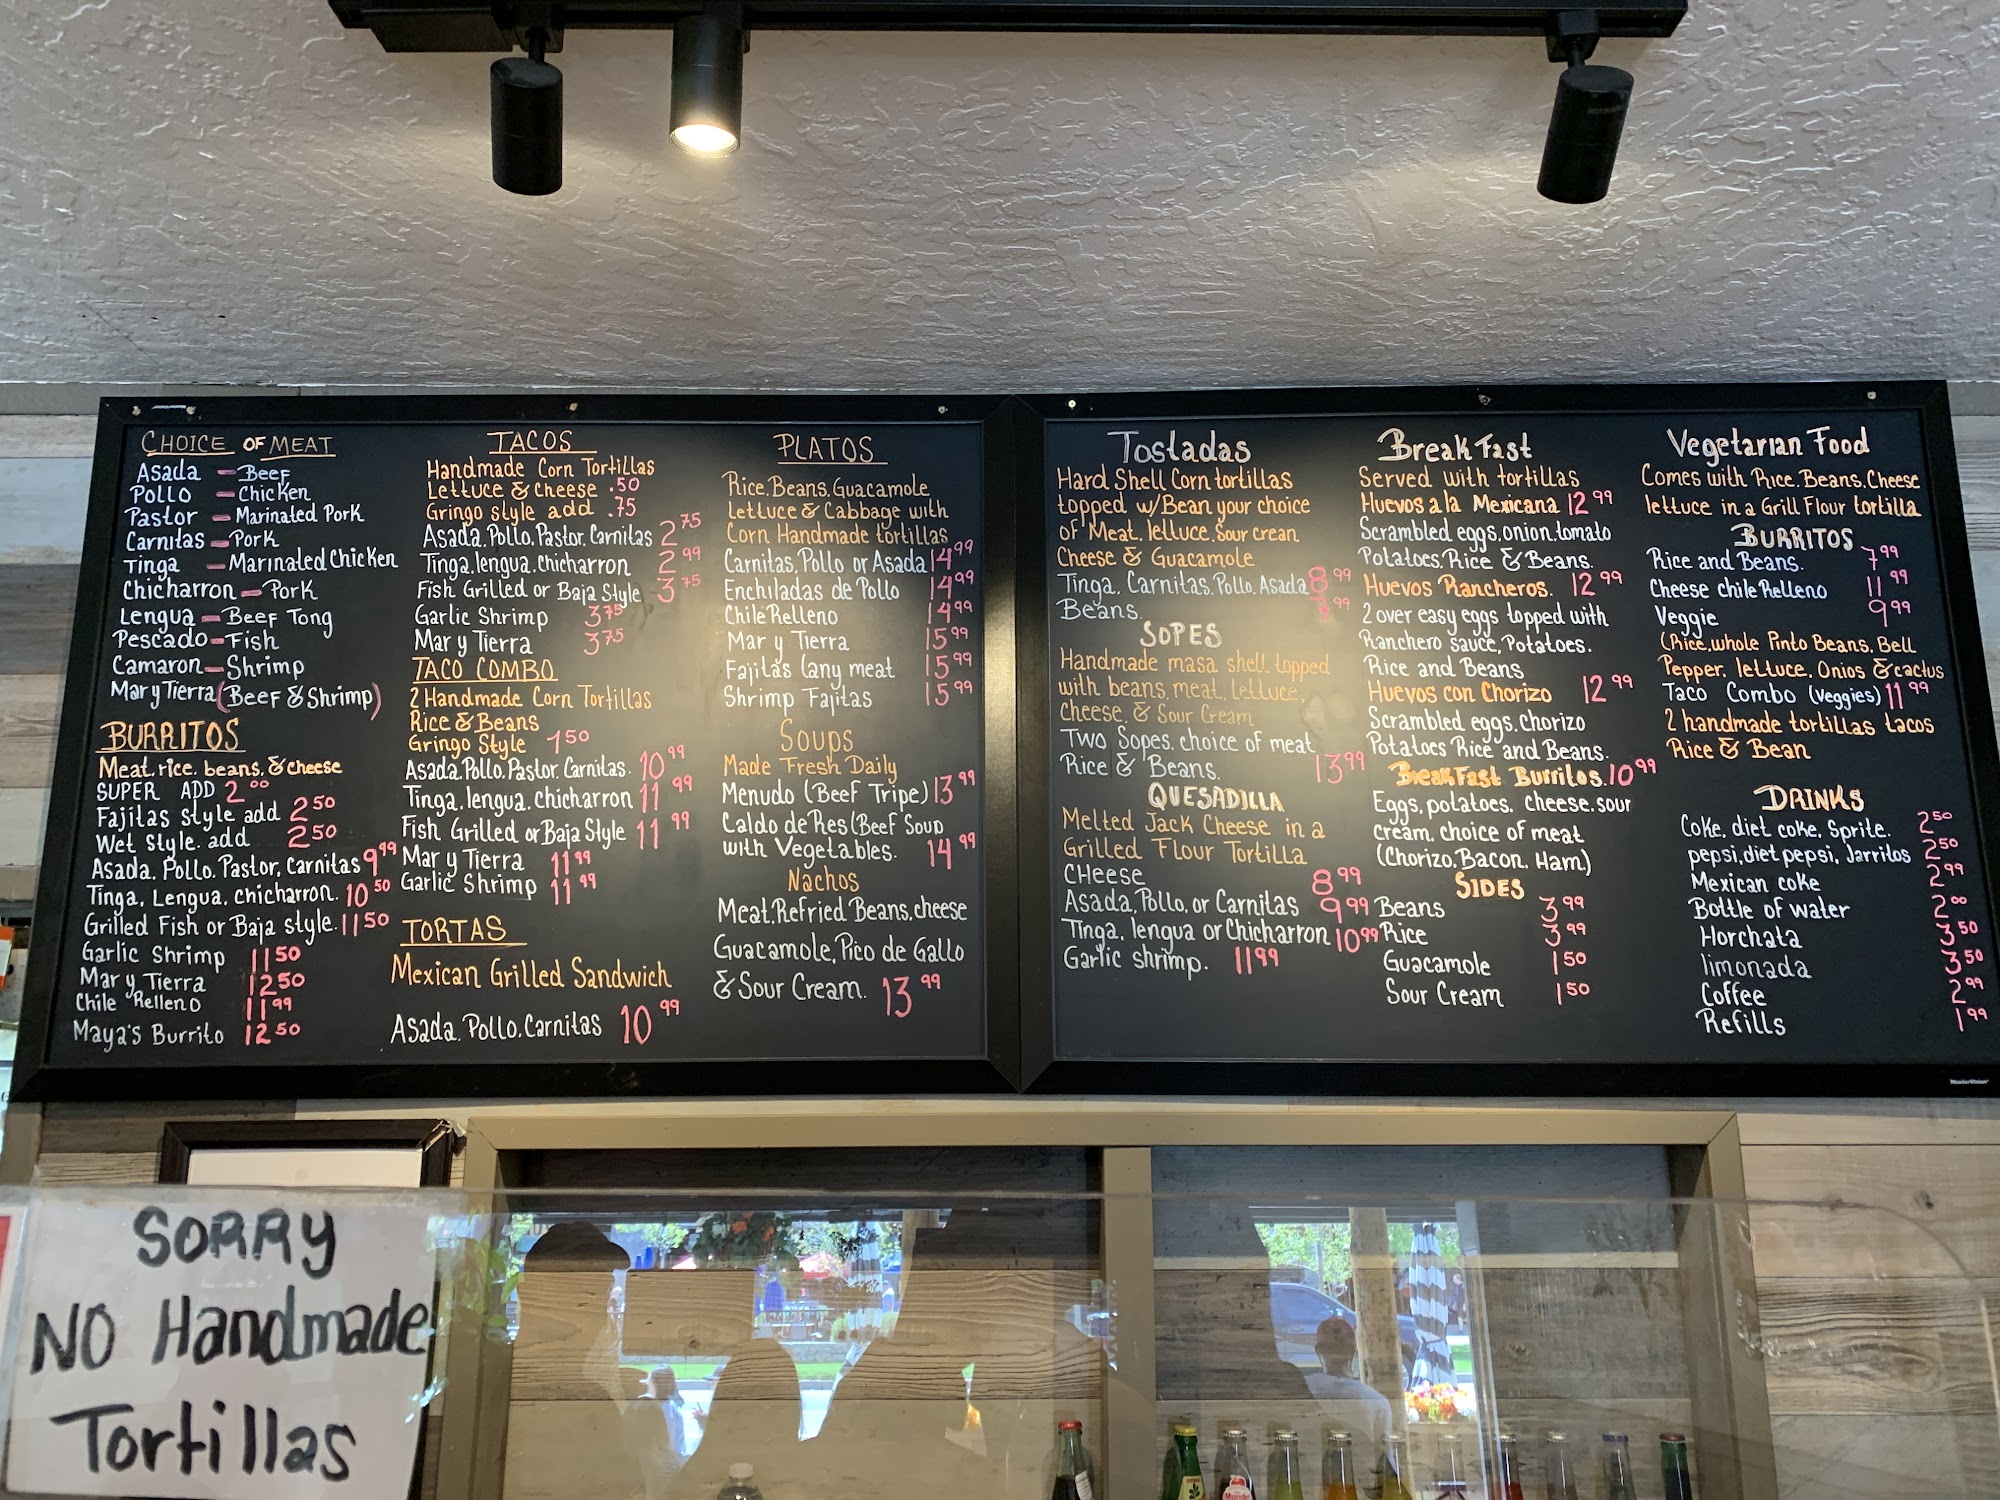 CHOICE OF MEAT
Asada - Beef
Pollo - Chicken
Pastor - Marinated Pork
Carnitas - Pork
Tinga - Marinated Chicken
Chicharron - Pork
Lengua - Beef Tong
Pescado - Fish
Camaron - Shrimp
Mar y Tierra (Beef & Shrimp)
BURRITOS
Meat, rice, beans, & cheese
SUPER ADD 2.00
Fajitas style add 2.50
Wet style. add 2.50
Asada, Pollo, Pastor, Carnitas 9.99
Tinga, Lengua, chicharron. 10.50
Grilled Fish or Baja style. 11.50
Garlic Shrimp 11.50
Mar y Tierra 12.50
Chile Relleno 11.99
Maya's Burrito 12.50
TACOS
Handmade Corn Tortillas
Lettuce & Cheese .50
Gringo style add .75
Asada, Pollo, Pastor, Carnitas 2.75
Tinga, lengua, chicharron 2.99
Fish Grilled or Baja Style 3.75
Garlic Shrimp 3.75
Mar y Tierra 3.75
TACO COMBO
2 Handmade Corn Tortillas
Rice & Beans
Gringo Style 1.50
Asada, Pollo, Pastor, Carnitas. 10.99
Tinga, lengua, chicharron 11.99
Fish Grilled or Baja Style 11.99
Mar y Tierra 11.99
Garlic Shrimp 11.99
TORTAS
Mexican Grilled Sandwich
Asada, Pollo, Carnitas 10.99
PLATOS
Rice, Beans, Guacamole
Lettuce & Cabbage with
Corn Handmade tortillas
Carnitas, Pollo or Asada 14.99
Enchiladas de Pollo 14.99
Chile Relleno 14.99
Mar y Tierra 15.99
Fajitas (any meat 15.99
Shrimp Fajitas 15.99
Soups
Made Fresh Daily
Menudo (Beef Tripe) 13.99
Caldo de Res (Beef Soup
with Vegetables. 14.99
Nachos
Meat, Refried Beans, cheese
Guacamole, Pico de Gallo
& Sour Cream. 13.99
Tostadas
Hard Shell Corn tortillas
topped w/Bean your choice
of Meat, lettuce, Sour crean
Cheese & Guacamole
Tinga, Carnitas, Pollo, Asada 8.99
Beans.
SOPES
Handmade masa shell topped
with beans, meat, lettuce,
Cheese, & Sour Cream
Two Sopes, choice of meat
Rice & Beans. 13.99
QUESADILLA
Melted Jack Cheese in a
Grilled Flour Tortilla
CHeese 8.99
Asada, Pollo, or Carnitas 9.99
Tinga, lengua or Chicharron 10.99
Garlic shrimp. 11.99
BreakFast
Served with tortillas
Huevos a la Mexicana 12.99
Scrambled eggs, onion, tomato
Potatoes, Rice & Beans.
Huevos Rancheros. 12.99
2 over easy eggs topped with
Ranchero sauce, Potatoes.
Rice and Beans
Huevos con Chorizo 12.99
Scrambled eggs, Chorizo
Potatoes Rice and Beans.
BreakFast Burritos. 10.99
Eggs, potatoes, cheese, sour
cream, choice of meat
(Chorizo, Bacon, Ham)
SIDES
Beans 3.99
Rice 3.99
Guacamole 1.50
Sour Cream 1.50
Vegetarian Food
Comes with Rice, Beans, Cheese
lettuce in a Grill Flour tortilla
BURRITOS
Rice and Beans. 7.99
Cheese chile Relleno 11.99
Veggie 9.99
(Rice, whole Pinto Beans, Bell
Pepper, lettuce, Onios & cactus
Taco Combo (Veggies) 11.99
2 handmade tortillas tacos
Rice & Bean
DRINKS
Coke, diet coke, Sprite. 2.50
pepsi, diet pepsi, Jarritos 2.50
Mexican coke 2.99
Bottle of water 2.00
Horchata 3.50
limonada 3.50
Coffee 2.99
Refills 1.99
SORRY
NO Handmade
Tortillas